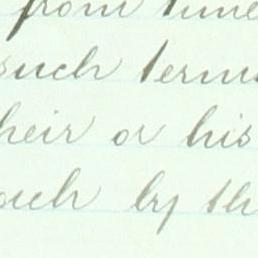 from time
such terms
heir or his
each by th